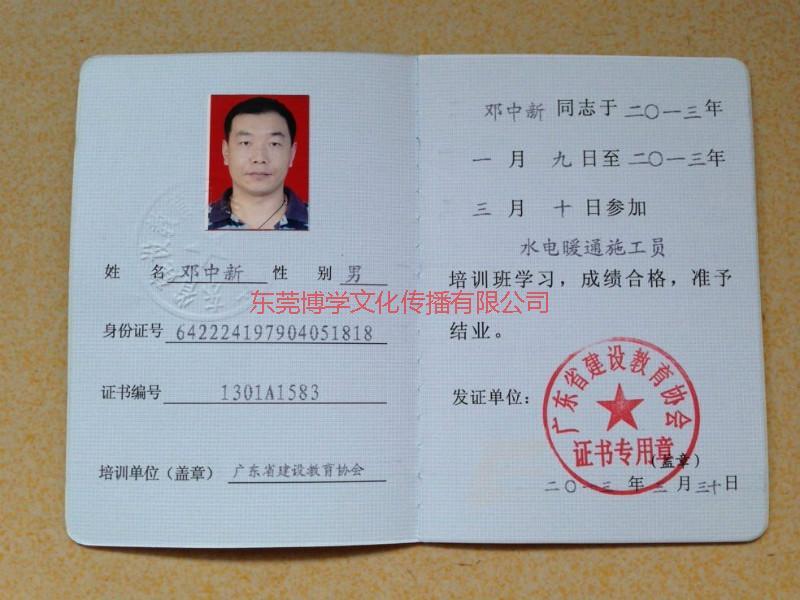 姓 名 邓中新 性 别 男
身份证号 642224197904051818
证书编号 1301A1583
培训单位（盖章） 广东省建设教育协会
邓中新 同志于 二〇一三 年
一 月 九 日至 二〇一三 年
三 月 十 日参加
水电暖通施工员
培训班学习，成绩合格，准予
结业。
发证单位：
广东省建设教育协会
证书专用章
（盖章）
二〇一三 年 三 月 三十 日
东莞博学文化传播有限公司